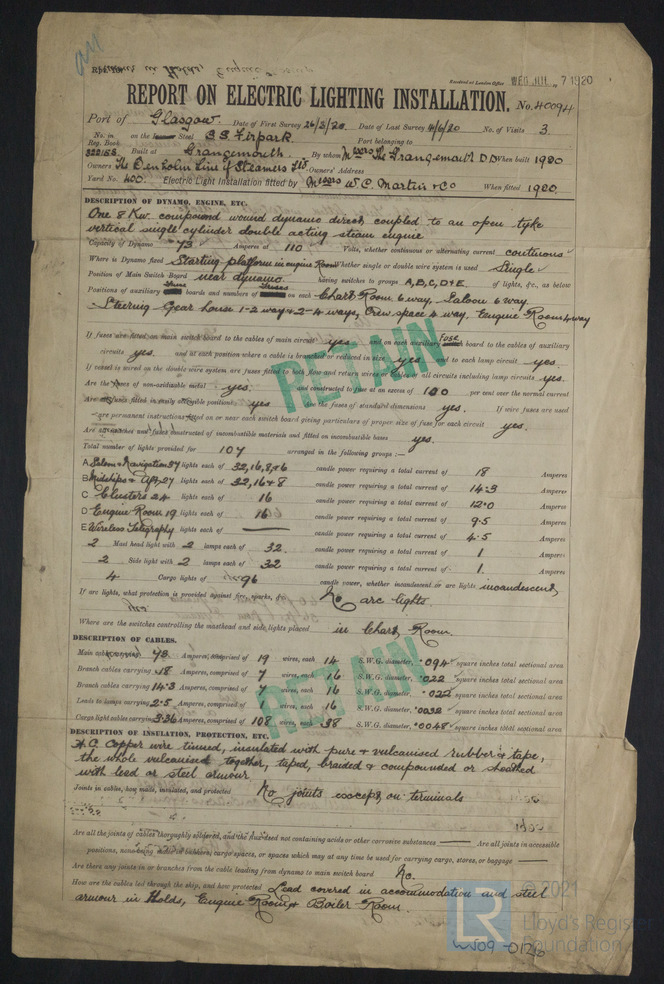 Received at London Office WED. JUL. 7 1920
REPORT ON ELECTRIC LIGHTING INSTALLATION. No. 40094
Port of Glasgow Date of First Survey 26/3/20 Date of Last Survey 4/6/20 No. of Visits 3
No. in on the Iron or Steel SS Firpark Port belonging to
Reg. Book
Built at Grangemouth By whom Messrs The Grangemouth D.D. When built 1920
Owners The Denholm Line of Steamers Ltd Owners' Address
Yard No. 400 Electric Light Installation fitted by Messrs W.C. Martin & Co When fitted 1920
DESCRIPTION OF DYNAMO, ENGINE, ETC.
One 8 Kw. compound wound dynamo direct coupled to an open type
vertical single cylinder double acting steam engine
Capacity of Dynamo 73 Amperes at 110 Volts, whether continuous or alternating current continuous
Where is Dynamo fixed Starting platform in engine Room Whether single or double wire system is used Single
Position of Main Switch Board near dynamo having switches to groups A, B, C, D & E. of lights, &c., as below
Positions of auxiliary fuse boards and numbers of fuses on each Chart Room 6 way, Saloon 6 way
Steering Gear house 1-2 way & 2-4 ways, Crew space 4 way, Engine Room 4 way
If fuses are fitted on main switch board to the cables of main circuit yes and on each auxiliary fuse board to the cables of auxiliary
circuits yes. and at each position where a cable is branched or reduced in size yes and to each lamp circuit yes.
If vessel is wired on the double wire system are fuses fitted to both flow and return wires or cables of all circuits including lamp circuits yes.
Are the fuses of non-oxidable metal yes. and constructed to fuse at an excess of 100 per cent over the normal current
Are all fuses fitted in easily accessible positions yes Are the fuses of standard dimensions yes. If wire fuses are used
are permanent instructions fitted on or near each switch board giving particulars of proper size of fuse for each circuit yes.
Are all switches and fuses constructed of incombustible materials and fitted on incombustible bases yes.
Total number of lights provided for 107 arranged in the following groups :—
A Saloon & Navigation 37 lights each of 32, 16, 8, & 6 candle power requiring a total current of 18 Amperes
B Midships & Aft, 27 lights each of 32, 16 & 8 candle power requiring a total current of 14.3 Amperes
C Clusters 24 lights each of 16 candle power requiring a total current of 12.0 Amperes
D Engine Room 19 lights each of 16 candle power requiring a total current of 9.5 Amperes
E Wireless Telegraphy lights each of — candle power requiring a total current of 4.5 Amperes
2 Mast head light with 2 lamps each of 32 candle power requiring a total current of 1 Amperes
2 Side light with 2 lamps each of 32 candle power requiring a total current of 1 Amperes
4 Cargo lights of 96 candle power, whether incandescent or arc lights incandescent
If arc lights, what protection is provided against fire, sparks, &c. No arc lights.
Where are the switches controlling the masthead and side lights placed in Chart Room.
DESCRIPTION OF CABLES.
Main cable carrying 73 Amperes, comprised of 19 wires, each 14 S.W.G. diameter, .094 square inches total sectional area
Branch cables carrying 18 Amperes, comprised of 7 wires, each 16 S.W.G. diameter, .022 square inches total sectional area
Branch cables carrying 14.3 Amperes, comprised of 7 wires, each 16 S.W.G. diameter, .022 square inches total sectional area
Leads to lamps carrying 2.5 Amperes, comprised of wires, each 16 S.W.G. diameter, .0032 square inches total sectional area
Cargo light cables carrying 3.36 Amperes, comprised of 108 wires, each 38 S.W.G. diameter, .0048 square inches total sectional area
DESCRIPTION OF INSULATION, PROTECTION, ETC.
H.C. Copper wire tinned, insulated with pure & vulcanised rubber & tape,
the whole vulcanised together, taped, braided & compounded or sheathed
with lead or steel armour
Joints in cables, how made, insulated, and protected No joints except on terminals
Are all the joints of cables thoroughly soldered, and the flux used not containing acids or other corrosive substances — Are all joints in accessible
positions, none being made in bunkers, cargo spaces, or spaces which may at any time be used for carrying cargo, stores, or baggage —
Are there any joints in or branches from the cable leading from dynamo to main switch board No.
How are the cables led through the ship, and how protected Lead covered in accommodation and steel
armour in Holds, Engine Room & Boiler Room.
RETAIN
RETAIN
LR © 2021
Lloyd's Register
Foundation